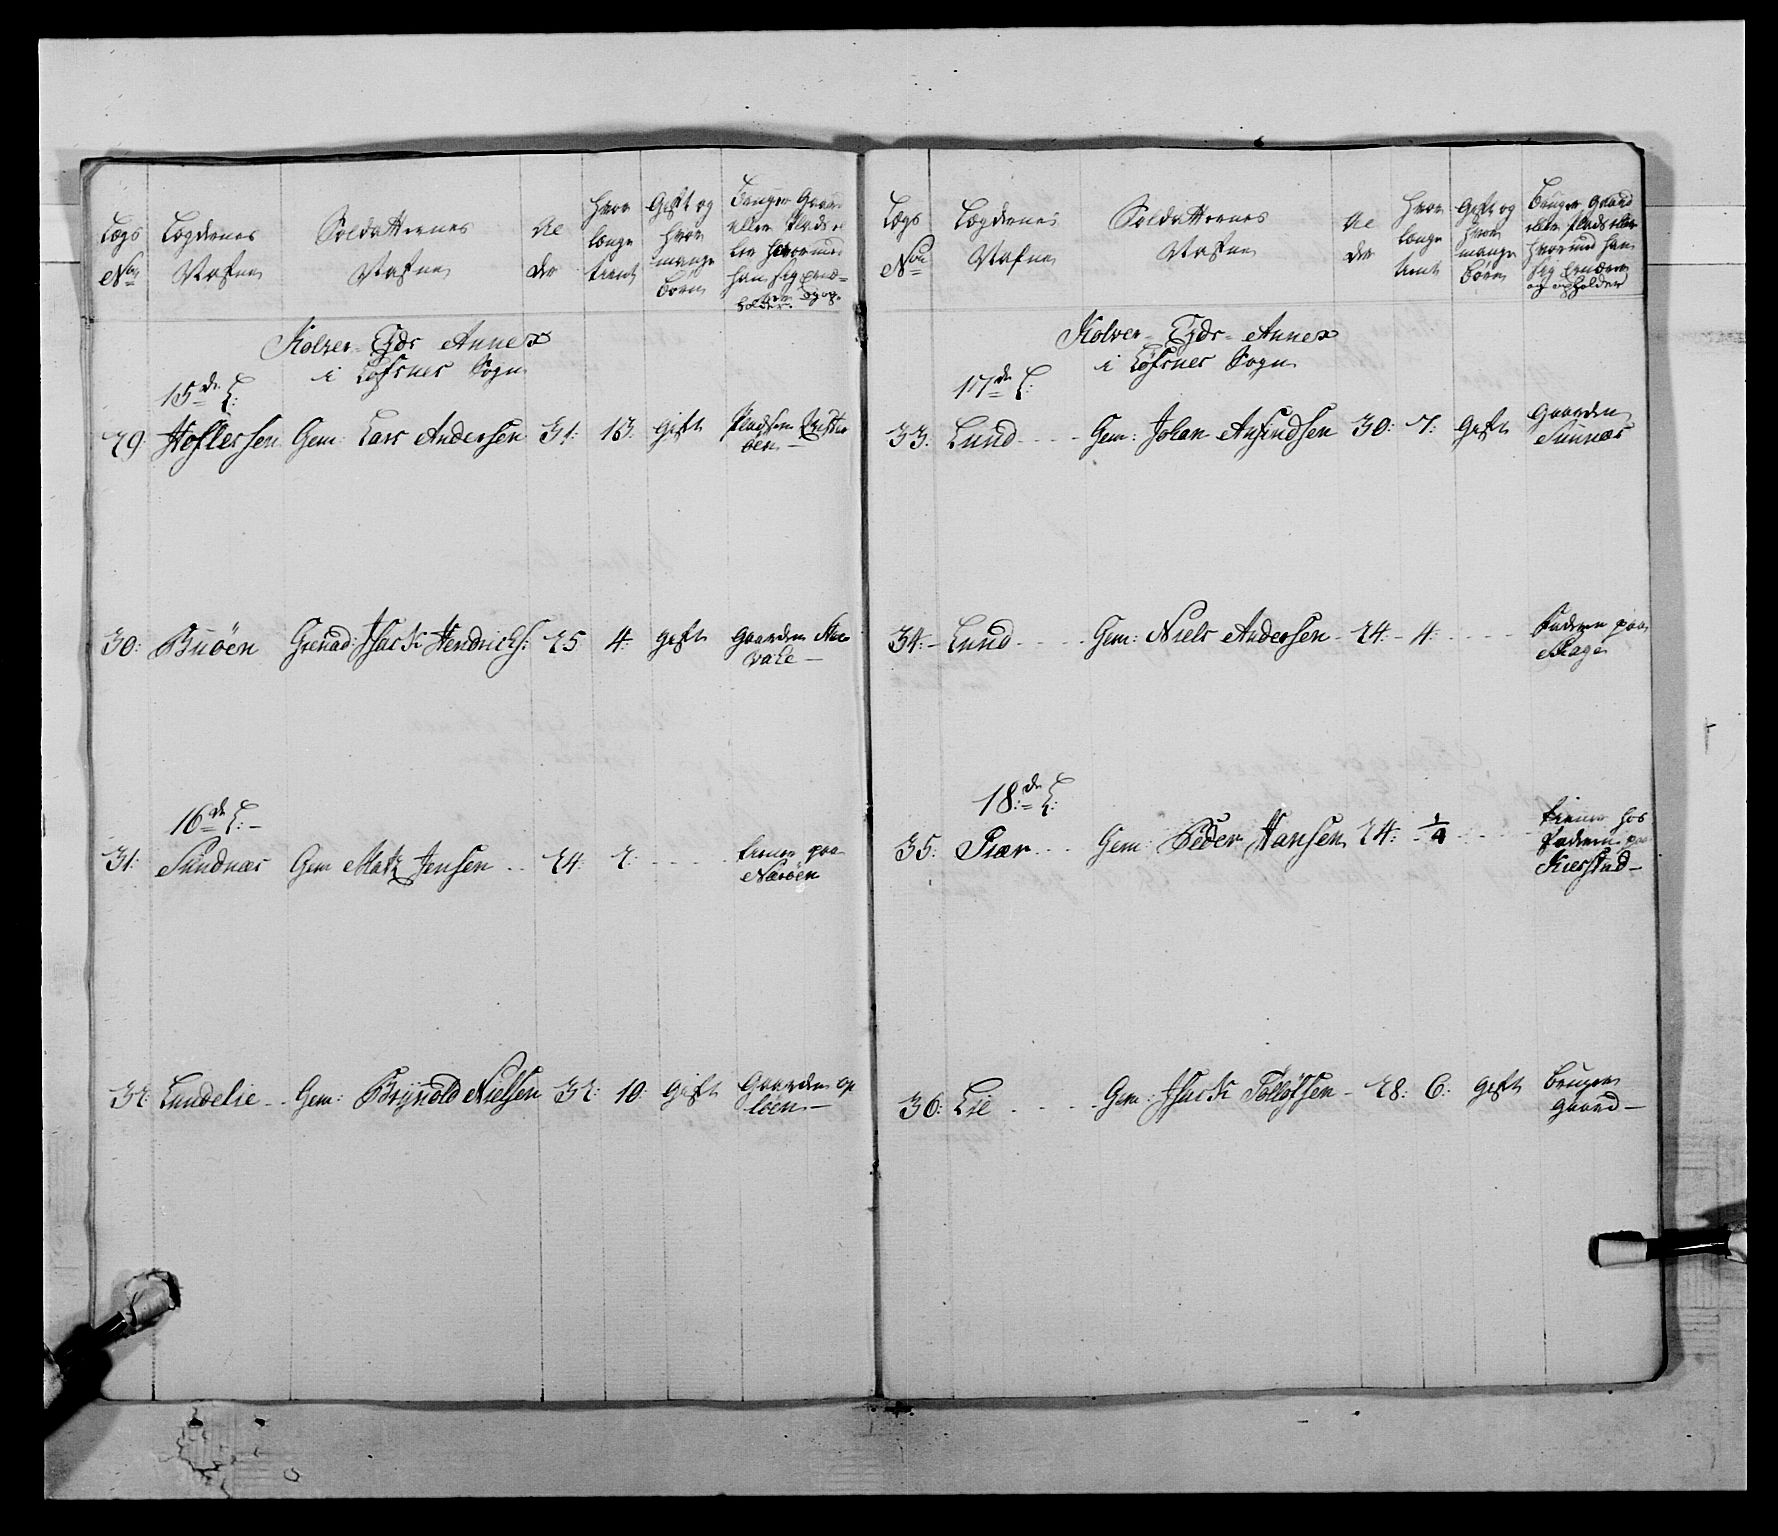 Lægs No Lægdernes Nafne Soldatternes Nafne Al der hvor længe tient Gift og hvor mange børn Bruger Gaard eller Plads el ler hvormed han sig ernæ= rer og op= holder.
Kolver=Eyds Annex
i Løfsnes Sogn
15de L:
29 Hoflersen Gem: Lars Andersen 31: 13: gift Pladsen
øen
30: Buöen Grenad: Isack Hendrichs: 25 4: gift gaarden
vale
16de L:
31: Sundnæs Gem Matz Jensen 24: 2: tiener paa
Nærøen
32: Lundelie Gem: Brynold Nielsen 32: 10: gift Gaarden
løen
Lægs No Lægdernes Nafne Soldatternes Nafne Al der Hvor længe tient Gift og hvor mange børn Bruger gaard eller Plads eller hvormed han sig ernærer og opholder
Kolver=Eyds=Annex
i Løfsnes Sogn
17de L:
33: Lund Gem: Johan Anfindsen 30: 7: gift gaarden
Sunnæs
34: Lund Gem: Niels Andersen 24: 4: Faderen paa
Skage
18de L:
35: Siær Gem: Peder Hansen 24: 1/4 tiener hos
Faderen paa
Kierstad
36: Lie Gem: Isack Tollofsen 28: 6: gift bruger
gaard